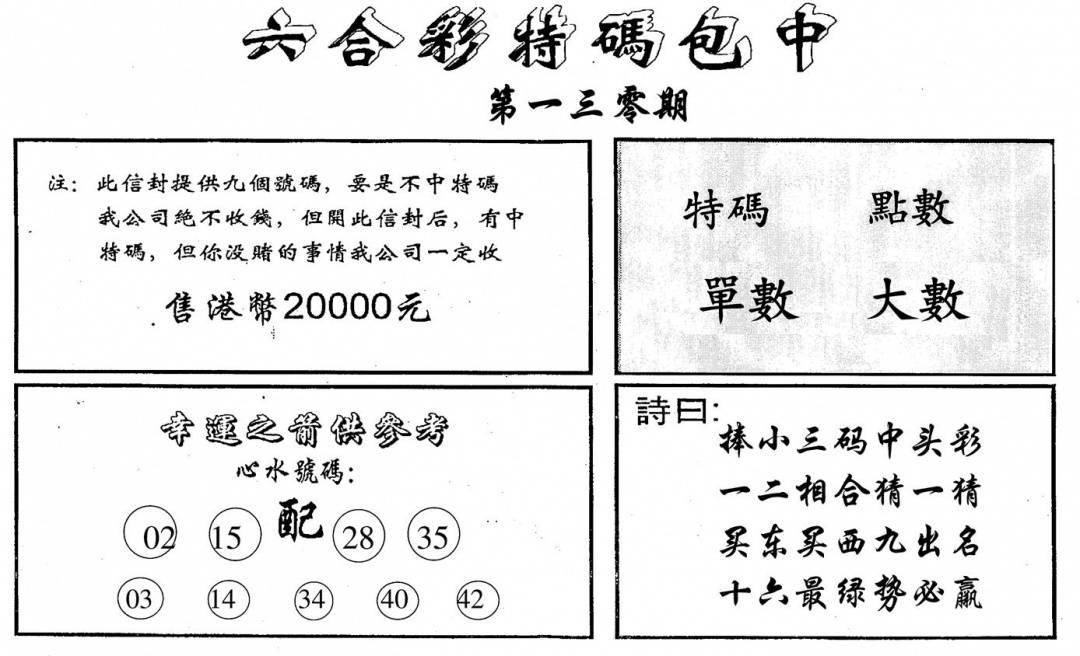 六合彩特碼包中
第一三零期
注：此信封提供九個號碼，要是不中特碼
我公司絕不收錢，但開此信封后，有中
特碼，但你没賭的事情我公司一定收
售港幣20000元
特碼 點數
單數 大數
幸運之箭供參考
心水號碼：
02 15 配 28 35
03 14 34 40 42
詩曰：
捧小三码中头彩
一二相合猜一猜
买东买西九出名
十六最绿势必赢